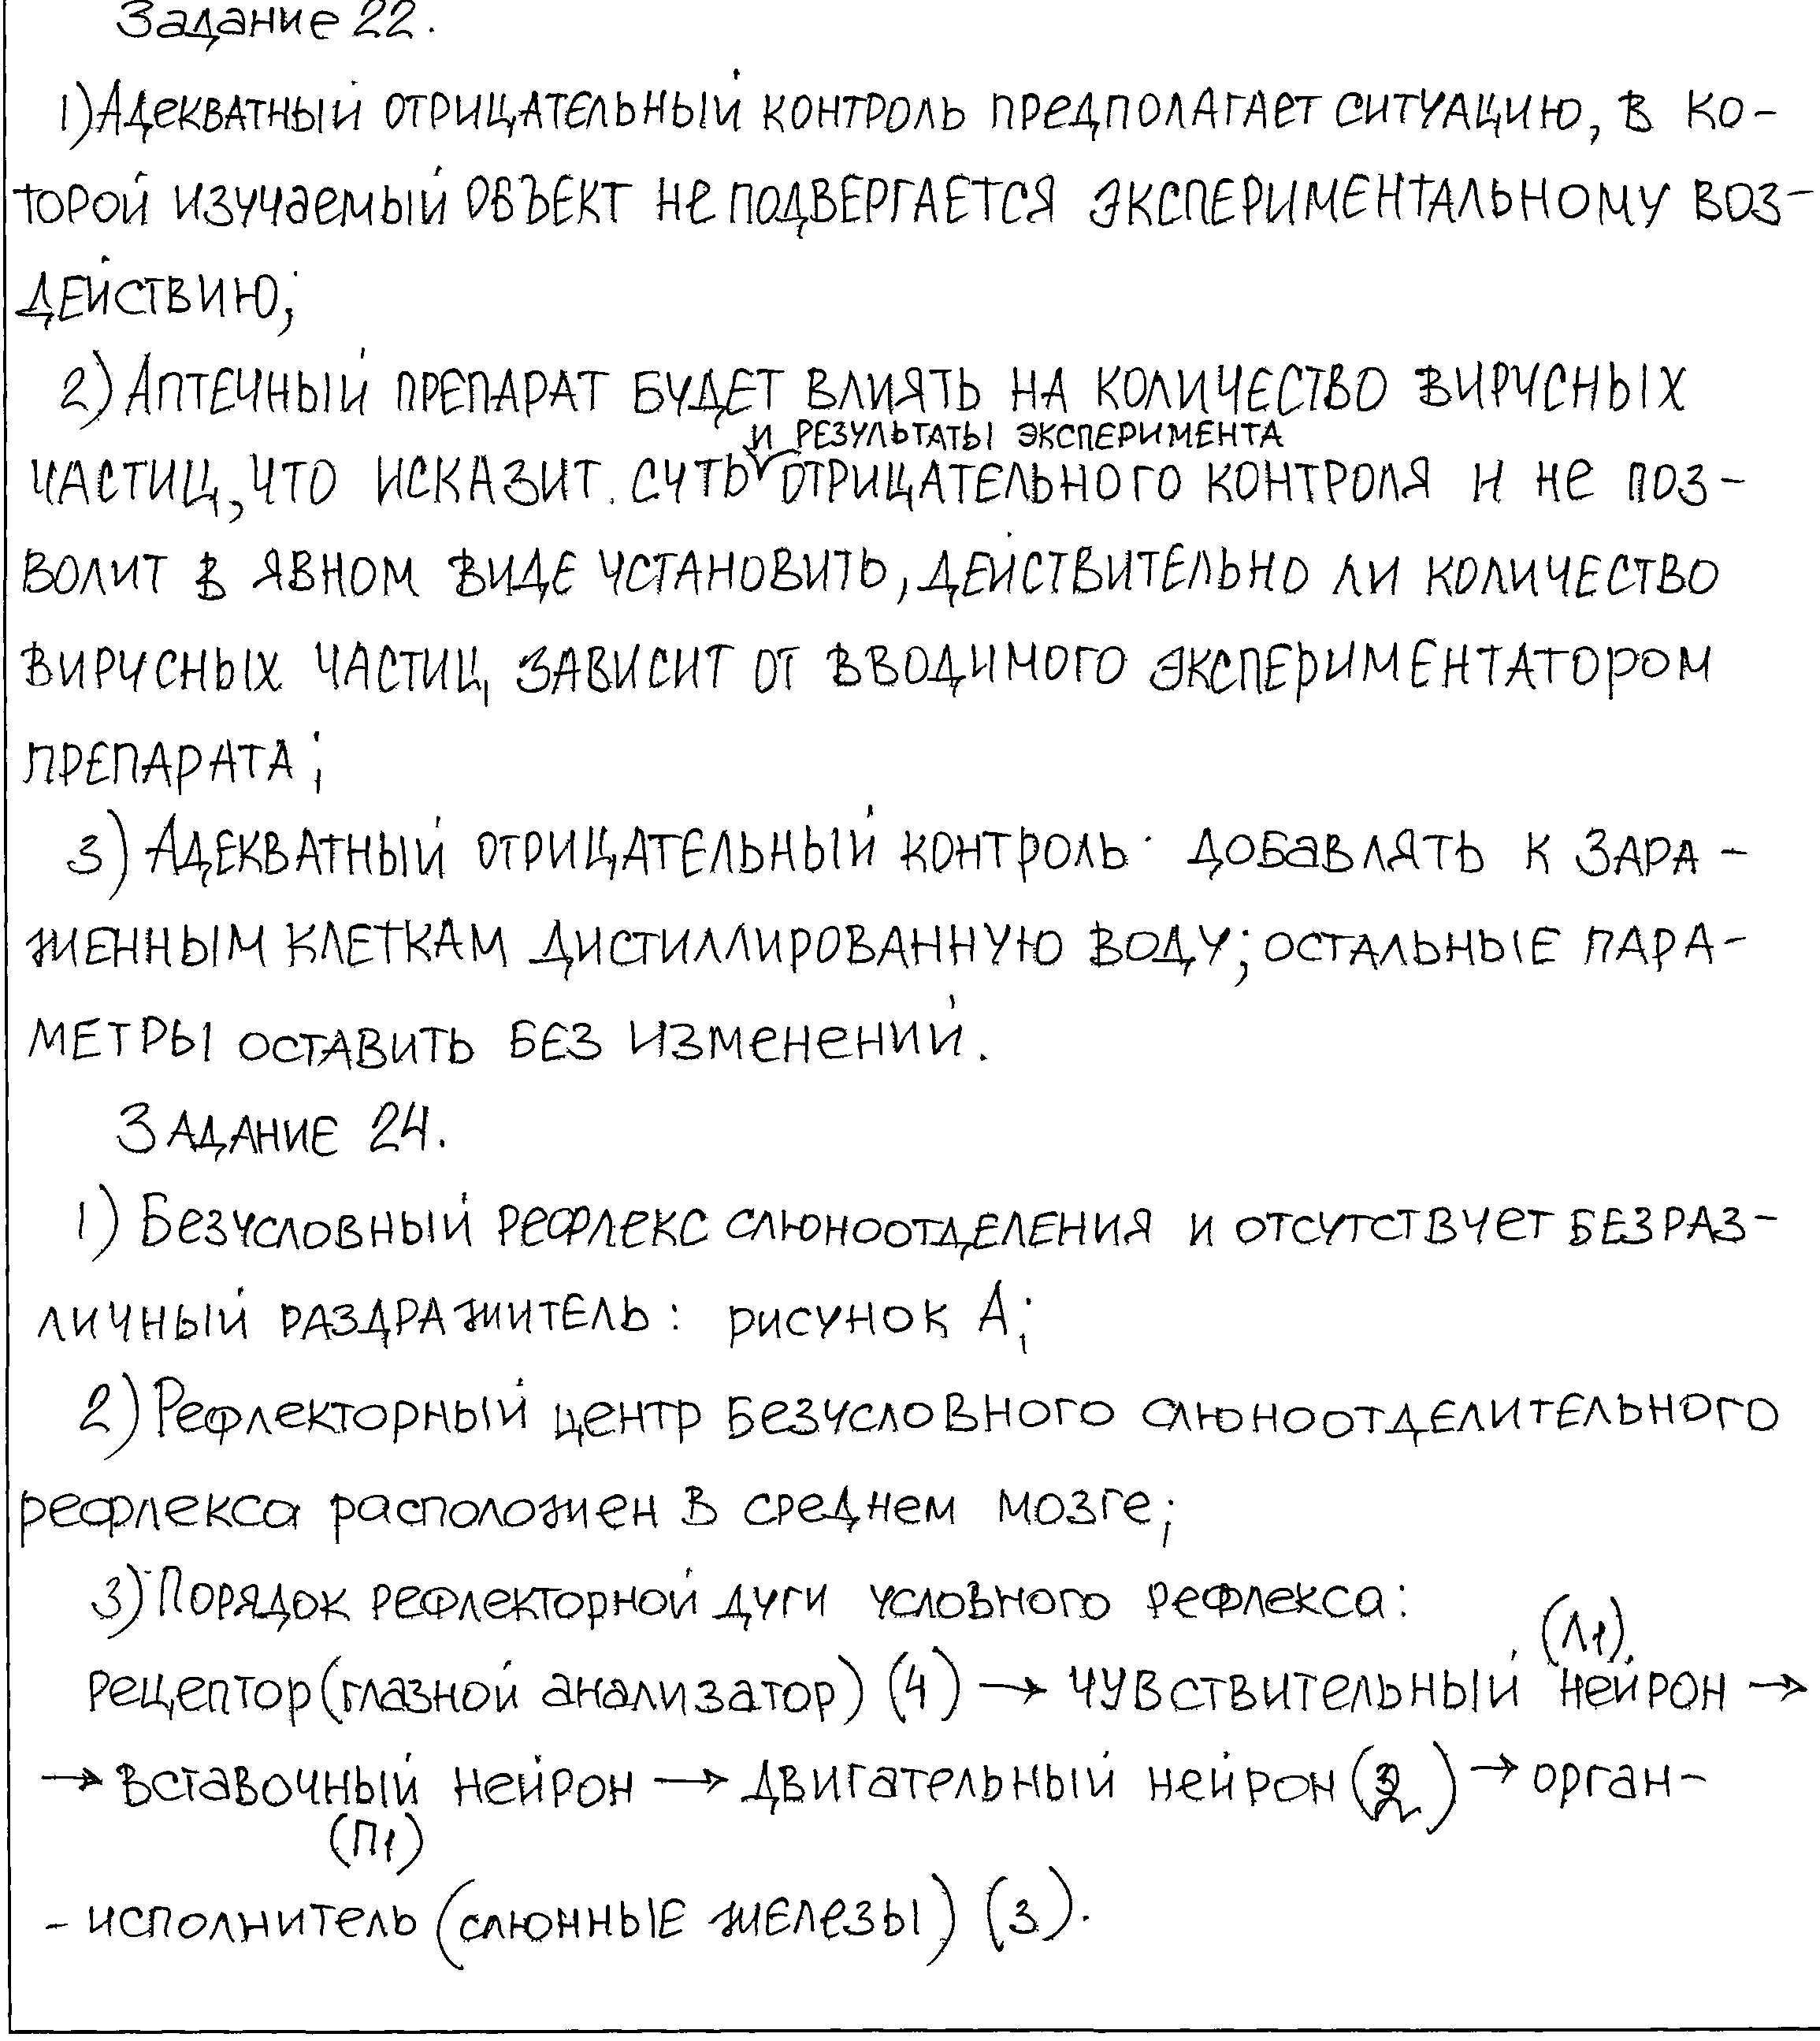 Задание 22.
1) Адекватный отрицательный контроль предполагает ситуацию, в ко-
торой изучаемый объект не подвергается экспериментальному воз-
действию;
2) Аптечный препарат будет влиять на количество вирусных
и результаты эксперимента
частиц, что исказит суть отрицательного контроля и не поз-
волит в явном виде установить, действительно ли количество
вирусных частиц зависит от вводимого экспериментатором
препарата;
3) Адекватный отрицательный контроль добавлять к зара-
женным клеткам дистиллированную воду; остальные пара-
метры оставить без изменений.
Задание 24.
1) Безусловный рефлекс слюноотделения и отсутствует безраз-
личный раздражитель: рисунок А;
2) Рефлекторный центр безусловного слюноотделительного
рефлекса расположен в среднем мозге;
3) Порядок рефлекторной дуги условного рефлекса:
(Л1)
рецептор (глазной анализатор) (4) → чувствительный нейрон →
→ вставочный нейрон → двигательный нейрон (2) → орган-
(П1)
- исполнитель (слюнные железы) (3).